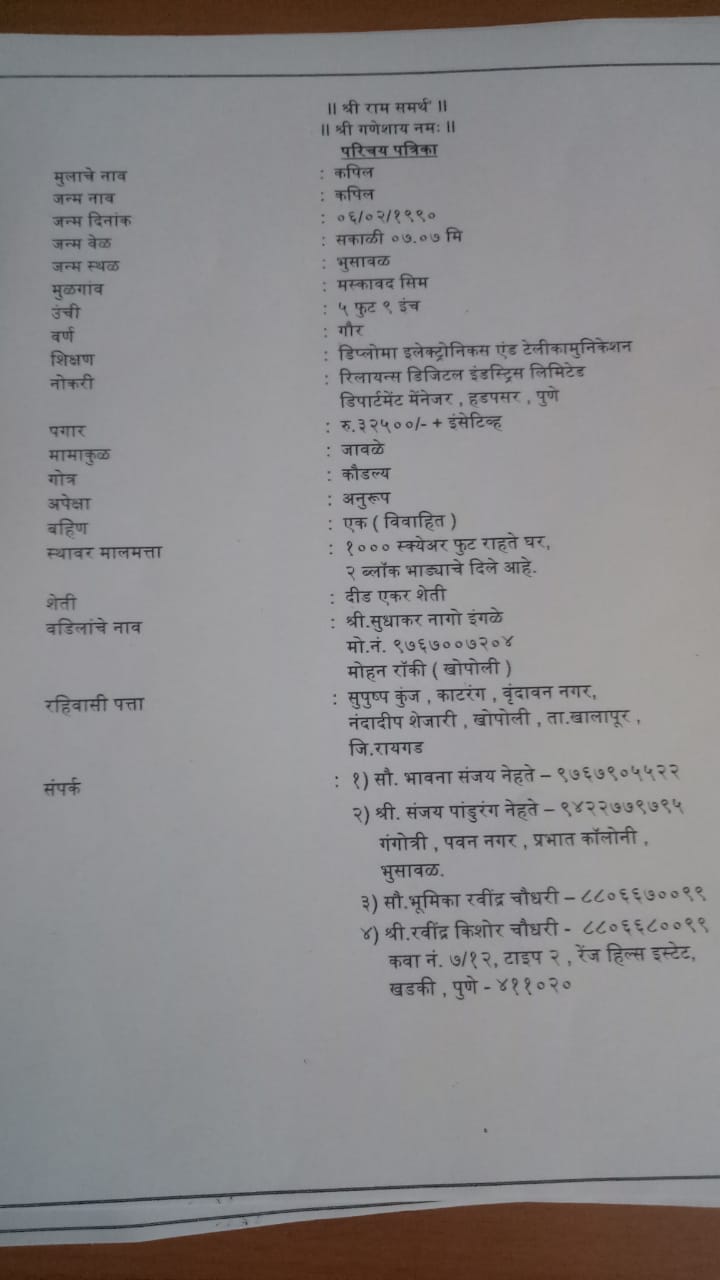 ॥ श्री राम समर्थ ॥
॥ श्री गणेशाय नमः ॥
परिचय पत्रिका
मुलाचे नाव : कपिल
जन्म नाव : कपिल
जन्म दिनांक : ०६/०२/१९९०
जन्म वेळ : सकाळी ०७.०७ मि
जन्म स्थळ : भुसावळ
मुळगांव : मस्कावद सिम
उंची : ५ फुट ९ इंच
वर्ण : गौर
शिक्षण : डिप्लोमा इलेक्ट्रोनिकस एंड टेलीकामुनिकेशन
नोकरी : रिलायन्स डिजिटल इंडस्ट्रिस लिमिटेड
डिपार्टमेंट मेंनेजर , हडपसर , पुणे
पगार : रु.३२५००/- + इंसेटिव्ह
मामाकुळ : जावळे
गोत्र : कौडल्य
अपेक्षा : अनुरूप
बहिण : एक ( विवाहित )
स्थावर मालमत्ता : १००० स्क्येअर फुट राहते घर,
२ ब्लॉक भाड्याचे दिले आहे.
शेती : दीड एकर शेती
वडिलांचे नाव : श्री.सुधाकर नागो इंगळे
मो.नं. ९७६७००७२०४
मोहन रॉकी ( खोपोली )
रहिवासी पत्ता : सुपुष्प कुंज , काटरंग , वृंदावन नगर,
नंदादीप शेजारी , खोपोली , ता.खालापूर ,
जि.रायगड
संपर्क : १) सौ. भावना संजय नेहते – ९७६७९०५५२२
२) श्री. संजय पांडुरंग नेहते – ९४२२७७९७९५
गंगोत्री , पवन नगर , प्रभात कॉलोनी ,
भुसावळ.
३) सौ.भूमिका रवींद्र चौधरी – ८८०६६७००९९
४) श्री.रवींद्र किशोर चौधरी - ८८०६६८००९९
कवा नं. ७/१२, टाइप २ , रेंज हिल्स इस्टेट,
खडकी , पुणे - ४११०२०